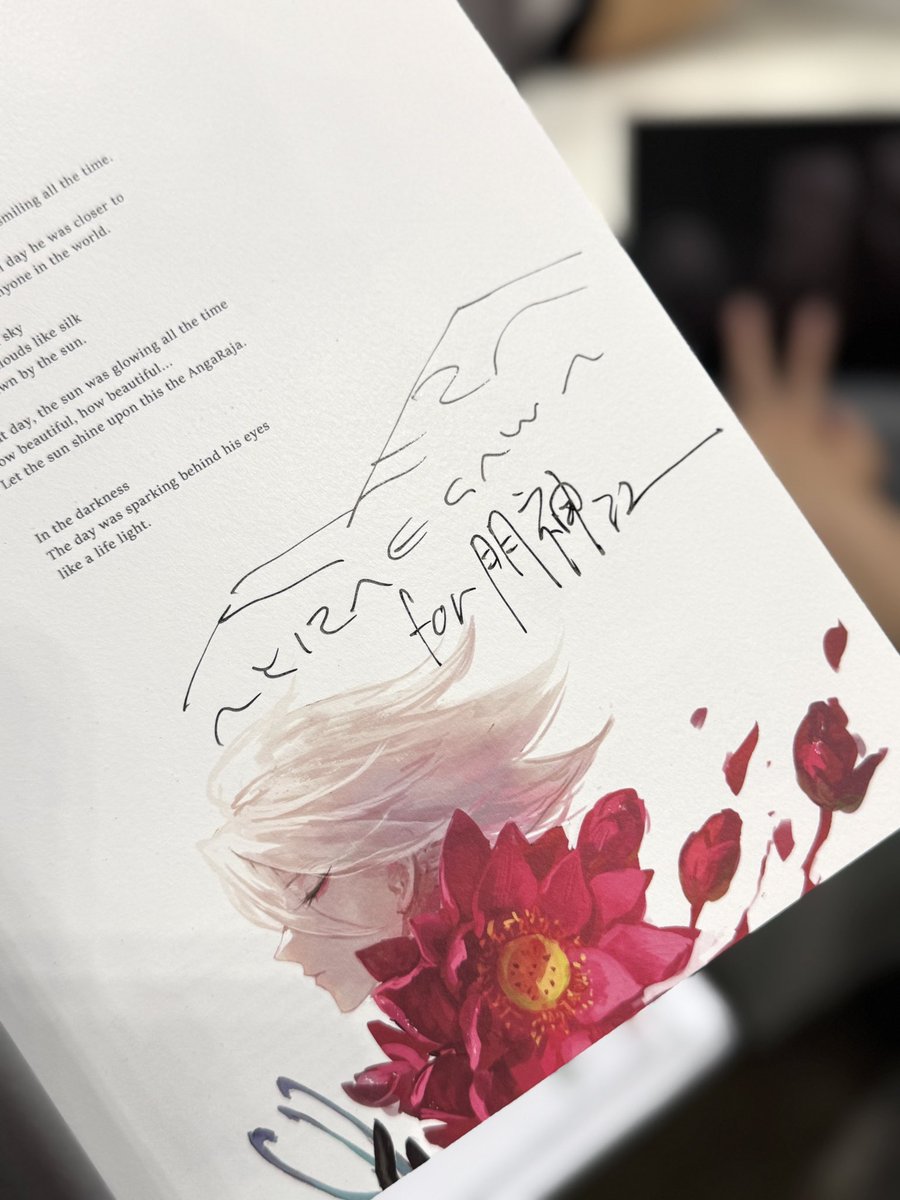 smiling all the time.
day he was closer to
anyone in the world.
sky
clouds like silk
by the sun.
day, the sun was glowing all the time
how beautiful, how beautiful...
Let the sun shine upon this the AngaRaja.
In the darkness
The day was sparking behind his eyes
like a life light.
for 明神